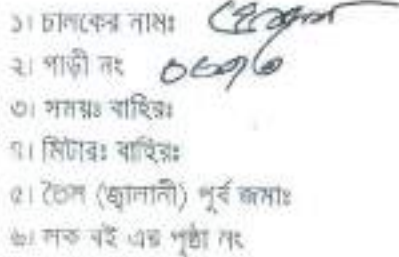 ১। চালকের নামঃ
২। গাড়ী নং
৩। সময়ঃ বাহিরঃ
৭। মিটারঃ বাহিরঃ
৫। তৈল (জ্বালানী) পূর্ব জমাঃ
৬। লক বই এর পৃষ্ঠা নং